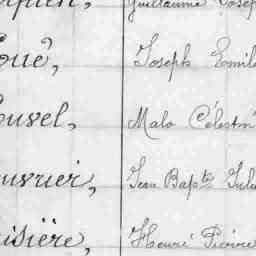 Guillaume Josep
Joseph Emile
ouvel, Malo Célestin
uvrier, Jean Bapte Jule
isière, Henri Pierre